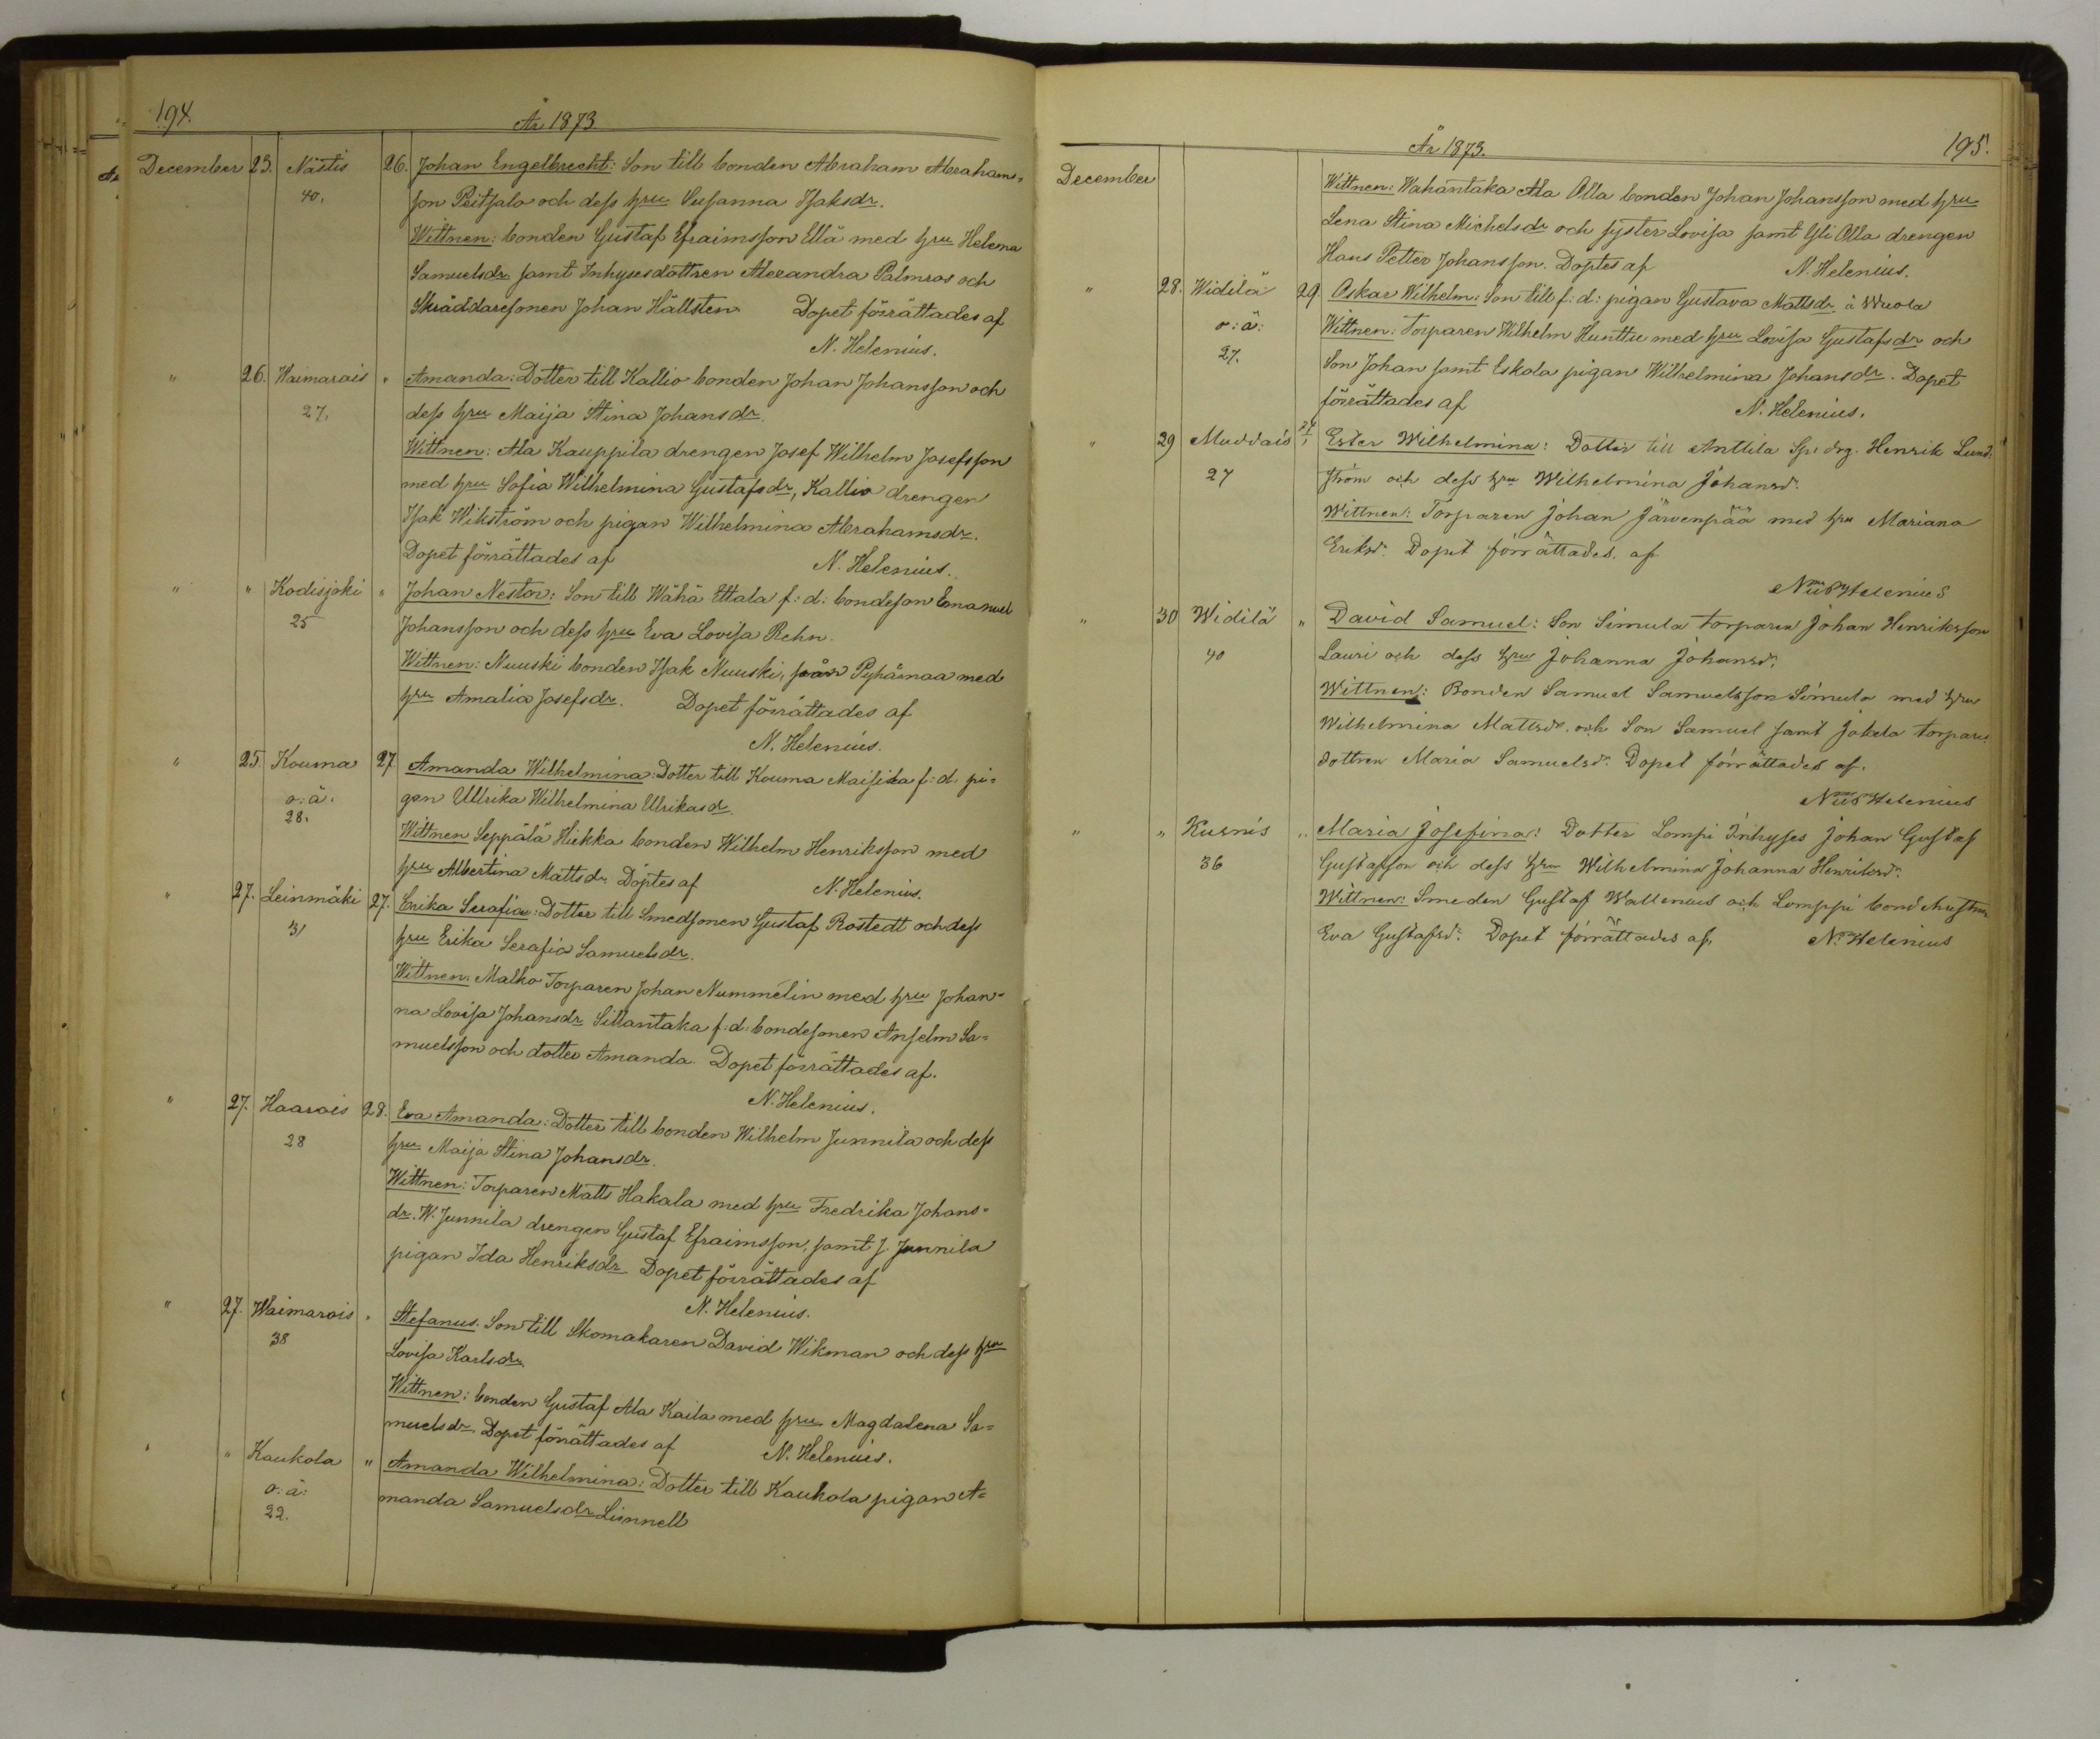 194.
År 1873.
December 23. Nästis 26. Johan Engelbrecht: Son till bonden Abraham Abrahams=
40. son Peitsalo och dess hru Susanna Isaksdr.
Wittnen: bonden Gustaf Efraimsson Ellä med hru Helena
Samuelsdr samt Inhysesdottren Alexandra Palmros och
Skräddaresonen Johan Hällsten Dopet förrättades af
N. Helenius.
" 26. Waimarais " Amanda: Dotter till Kallio bonden Johan Johansson och
27. dess hru Maija Stina Johansdr.
Wittnen: Ala Kauppila drengen Josef Wilhelm Josefsson
med hru Sofia Wilhelmina Gustafsdr, Kallio drengen
Isak Wikström och pigan Wilhelmina Abrahamsdr.
Dopet förrättades af N. Helenius.
" " Kodisjoki " Johan Nestor: Son till Wähä Ettala f: d: bondeson Emanuel
25 Johansson och dess hru Eva Lovisa Rehn.
Wittnen: Nuuski bonden Isak Nuuski, från Pyhämaa med
hru Amalia Josefsdr. Dopet förrättades af
N. Helenius.
" 25. Kouma 27 Amanda Wilhelmina: Dotter till Kouma f: d: pi=
o: ä: gan Ullrika Wilhelmina Ulrikasdr.
28. Wittnen Seppälä Hiekka bonden Wilhelm Henriksson med
hru Albertina Mattsdr. Döptes af N. Helenius.
" 27. Leinmäki 27. Erika Serafia: Dotter till Smedsonen Gustaf Rostedt och dess
31 hru Erika Serafia Samuelsdr.
Wittnen. Malko Torparen Johan Nummelin med hru Johan=
na Lovisa Johansdr Sillantaka f: d: bondesonen Anselm Sa=
muelsson och dotter Amanda. Dopet förrättades af.
N. Helenius.
" 27. Haarois 28. Eva Amanda: Dotter till bonden Wilhelm Junnila och dess
28 hru Maija Stina Johansdr.
Wittnen: Torparen Matts Hakala med hru Fredrika Johans=
dr. W. Junnila drengen Gustaf Efraimsson, samt J. Junnila
pigan Ida Henriksdr Dopet förrättades af
N. Helenius.
" 27. Waimarois " Stefanus. Son till Skomakaren David Wikman och dess hru
38 Lovisa Karlsdr.
Wittnen: bonden Gustaf Ala Kaila med hru Magdalena Sa=
muelsdr. Dopet förrättades af N. Helenius.
" " Kaukola " Amanda Wilhelmina: Dotter till Kaukola pigan A=
o: ä: manda Samuelsdr Linnell
22.
År 1873. 195.
December Wittnen: Wahantaka Ala Olla bonden Johan Johansson med hru
Lena Stina Michelsdr och syster Lovisa samt Yli Olla drengen
Hans Petter Johansson. Döptes af N. Helenius.
" 28. Widilä 29. Oskar Wilhelm: Son till f: d: pigan Gustava Mattsdr. å Wuola
o: ä: Wittnen: Torparen Wilhelm Hunttu med hru Lovisa Gustafsdr och
27. Son Johan samt Eskola pigan Wilhelmina Johansdr. Dopet
förrättades af N. Helenius.
" 29 Muddais Ester Wilhelmina: Dotter till Anttila Sp: drg. Henrik Lund=
27 ström och dess hru Wilhelmina Johansdr.
Wittnen: Torparen Johan Järvenpää med hru Mariana
Eriksdr. Dopet förrättades. af
Helenius
" 30 Widilä " David Samuel: Son Simula torparen Johan Henriksson
40 Lauri och dess hru Johanna Johansdr.
Wittnen: Bonden Samuel Samuelsson Simula med hru
Wilhelmina Mattsdr. och Son Samuel samt Jokela torpare
dottren Maria Samuelsdr. Dopet förrättades af.
Helenius
" " Kusnis " Maria Josefina: Dotter Lompi Inhyses Johan Gustaf
36 Gustafsson och dess hru Wilhelmina Johanna Henriksdr.
Wittnen: Smeden Gustaf Wallenius och Lomppi bond
Eva Gustafsdr. Dopet förrättades af, N. Helenius